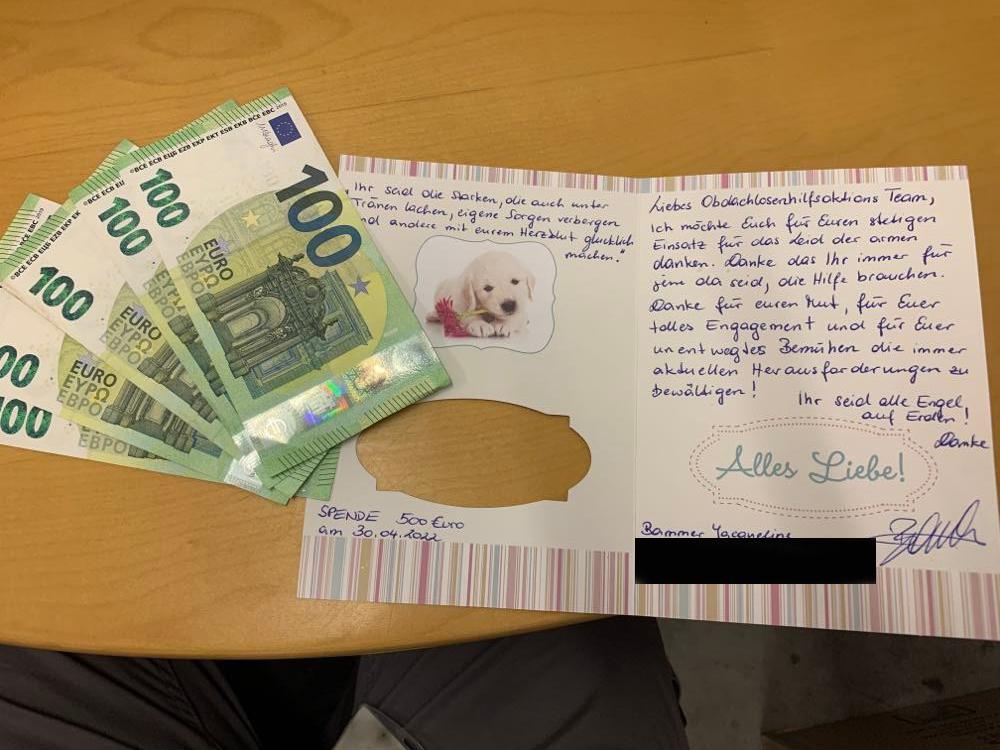 ©BCE ECB EЦБ EZB EKP EKT ESB EKB BĊE EBC 2019
100
100
100
100
EURO
ΕΥΡΩ
ЕВРО
©BCE ECB EU
100
©BCE ECB EЦБ EZB EKP EK
100
EURO
ΕΥΡΩ
ЕВРО
00
100
EURO
ΕΥΡΩ
ЕВРО
"Ihr seid die Starken, die auch unter
Tränen lachen, eigene Sorgen verbergen
nd andere mit eurem Herzblut glücklich
machen."
SPENDE 500 Euro
am 30.04.2022
Liebes Obdachlosenhilfsaktions Team,
ich möchte Euch für Euren stetigen
Einsatz für das Leid der armen
danken. Danke das Ihr immer für
jene da seid, die Hilfe brauchen.
Danke für euren Mut, für Euer
tolles Engagement und für Euer
unentwegtes Bemühen die immer
aktuellen Herausforderungen zu
bewältigen!
Ihr seid alle Engel
auf Erden!
Danke
Alles Liebe!
Bammer Jacqueline